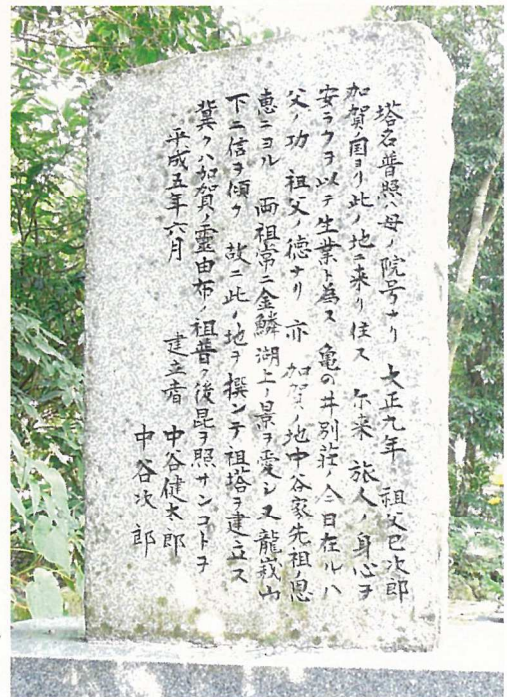 塔名普照ハ母ノ院号ナリ 大正九年 祖父巳次郎
加賀ノ国ヨリ此ノ地ニ来リ住ス 尓来 旅人ノ身心ヲ
安ラクヲ以テ生業ト為ス 亀の井別荘ノ今日在ルハ
父ノ功 祖父ノ徳ナリ 亦 加賀ノ地中谷家先祖ノ恩
恵ニヨル 両祖常ニ金鱗湖上ノ景ヲ愛シ又龍峩山
下ニ信ヲ傾ク 故ニ此ノ地ヲ撰ンテ祖塔ヲ建立ス
冀クハ加賀ノ霊由布ノ祖普ク後昆ヲ照サンコトヲ
平成五年六月 建立者 中谷健太郎
中谷次郎